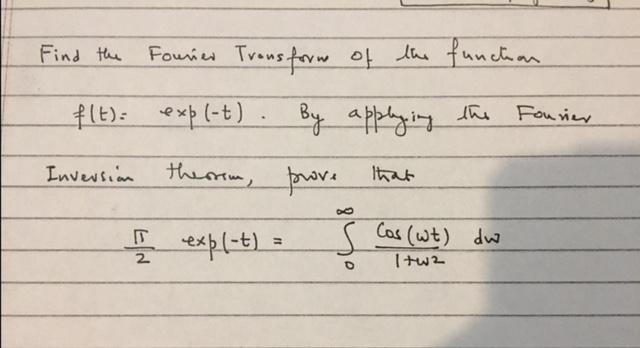 Find the Fourier Transform of the function
f(t) = exp(-t). By applying the Fourier
Inversion theorem, prove that
π/2 exp(-t) = ∫₀^∞ Cos(ωt)/1+ω2 dω